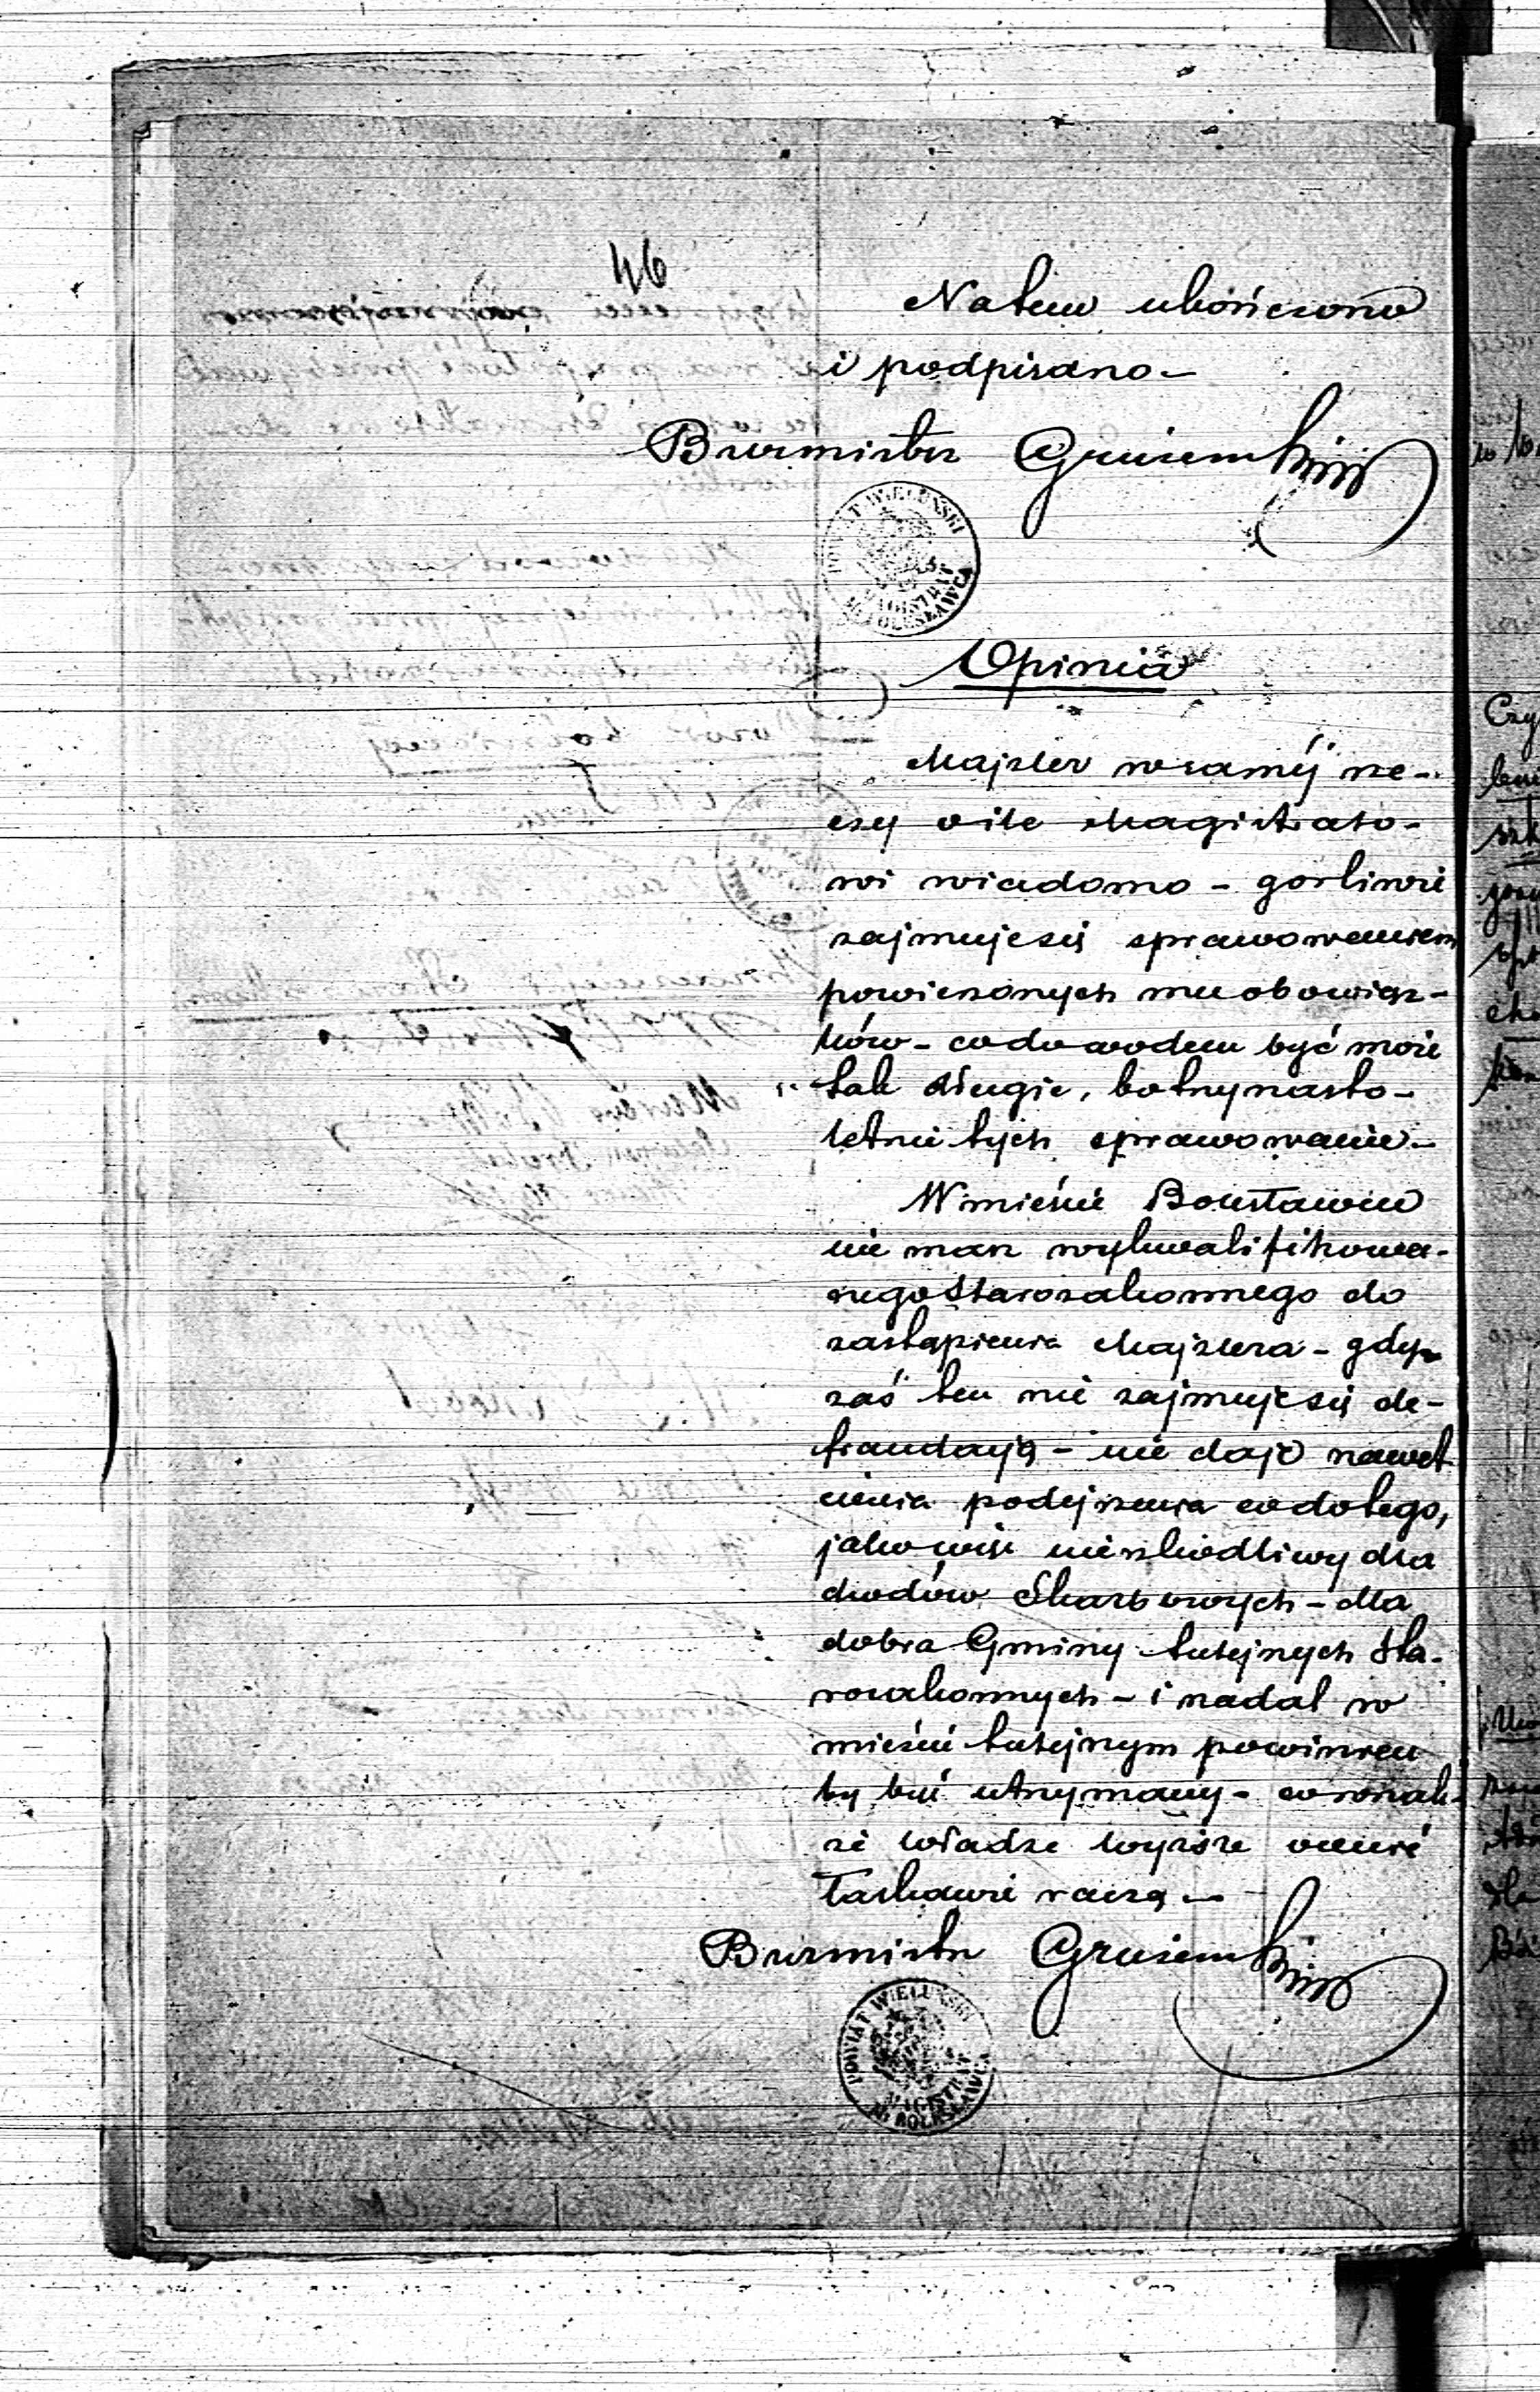 46
Na tem ukończono
i podpisano –
Burmistrz
POWIAT WIELUNSKI MAGISTRAT M. BOLESŁAWCA
Opinia
Majzler w saméj rze-
czy o ile Magistrato-
wi wiadomo – gorliwie
zajmuje się sprawowaniem
powierzonych mu obowiąz-
ków – co dowodem być może
tak długie, bo trzynasto-
letnie tych sprawowanie –
W mieście Bolesławcu
nie masz wykwalifikowa-
nego Starozakonnego do
zastąpienia Majzlera – gdy
zaś ten nie zajmuje się de-
fraudacją – nie daje nawet
cienia podejrzenia co do tego,
jako więc nieszkodliwy dla
dochodów Skarbowych – dla
dobra Gminy tutejszych Sta-
rozakonnych – i nadal w
mieście tutejszym powinien
by być utrzymany – co wszak-
że Władze wyższe ocenić
łaskawie raczą –
Burmistrz
POWIAT WIELUNSKI MAGISTRAT M. BOLESŁAWCA